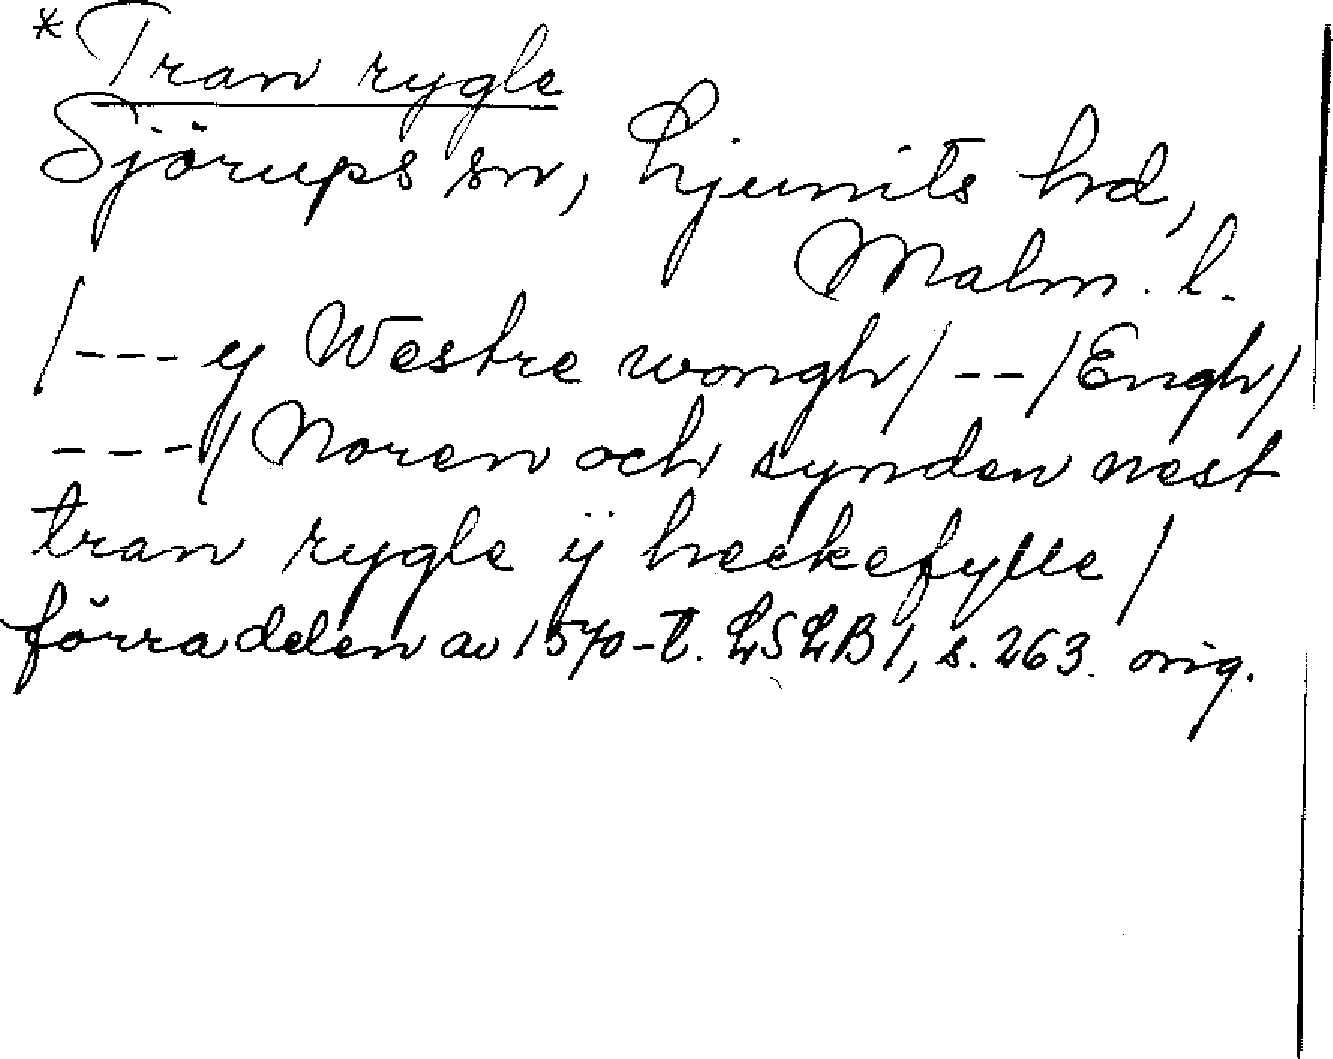 * Tran rygle
Sjörups sn, Ljunits hd,
Malm. l.
/--- y Westre wongh/ -- /Engh/
---/ Noren och synden nest
tran rygle ÿ heekefylle /
förra delen av 1570-t. LSLB 1, s. 263. orig.